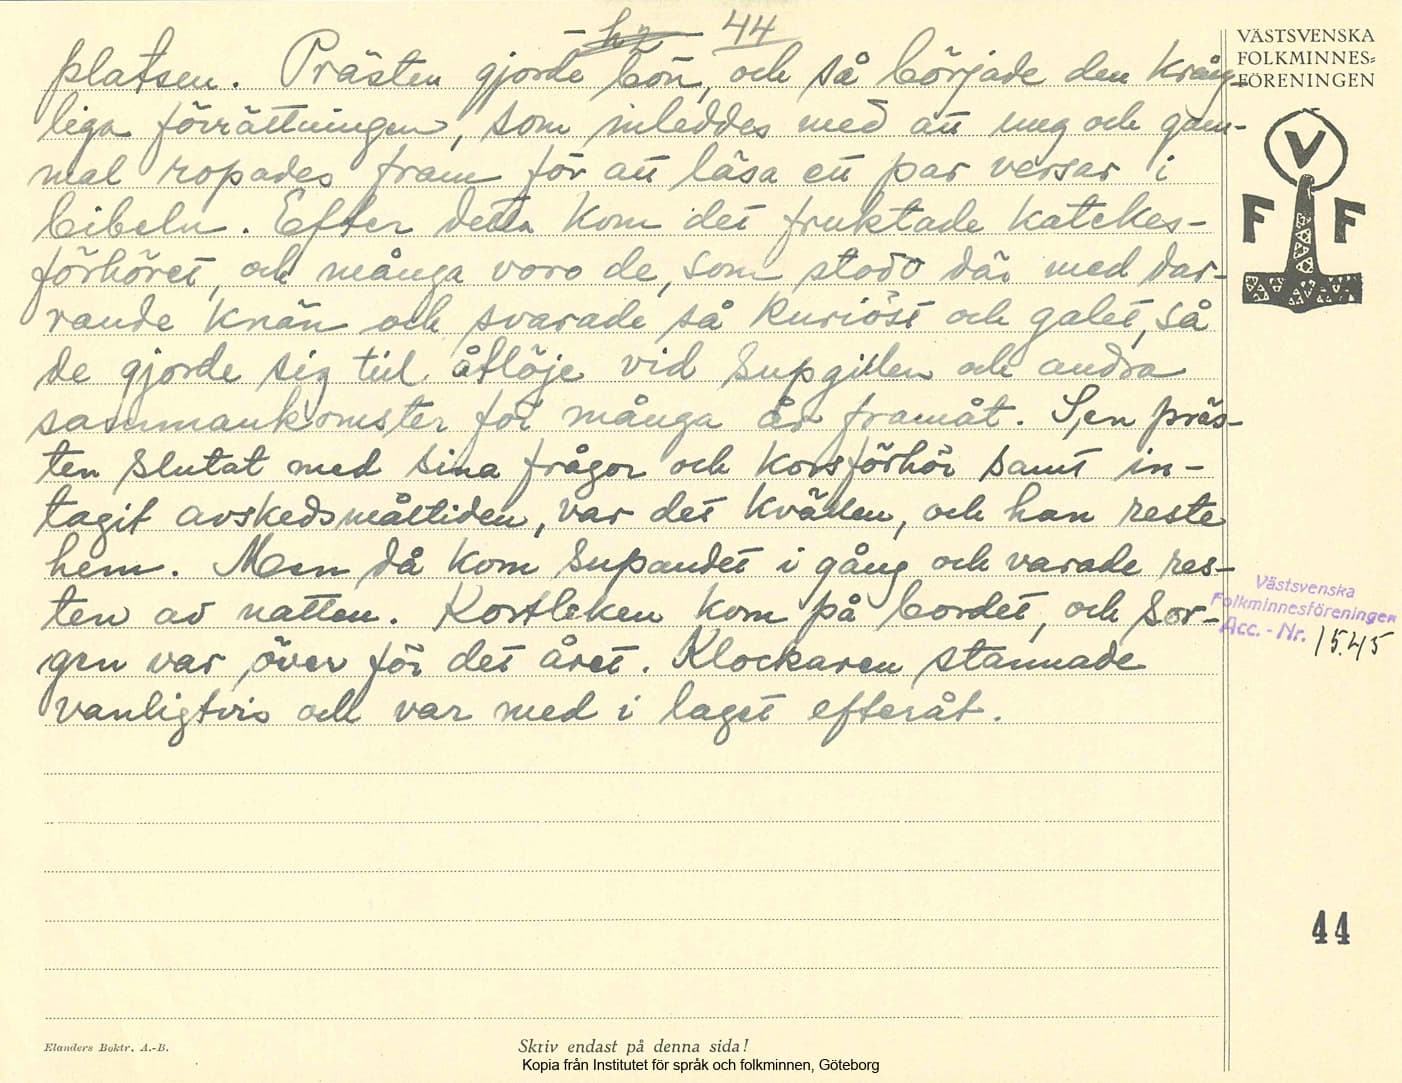 44
platsen. Prästen gjorde bön, och så började den krång-
liga förrättningen, som inleddes med att ung och gam-
mal ropades fram för att läsa ett par versar i
bibeln. Efter detta kom det fruktade katekes-
förhöret, och många voro de, som stodo där med dar-
rande knän och svarade så kuriöst och galet, så
de gjorde sig till åtlöje vid supgillen och andra
sammankomster för många år framåt. Sen präs-
ten slutat med sina frågor och korsförhör samt in-
tagit avskedsmåltiden, var det kvällen, och han reste
hem. Men då kom supandet i gång och varade res-
ten av natten. Kortleken kom på bordet, och sor-
gen var över för det året. Klockaren stannade
vanligtvis och var med i laget efteråt.
VÄSTSVENSKA
FOLKMINNES-
FÖRENINGEN
V
F F
Västsvenska
Folkminnesföreningen
Acc. - Nr. 1545
44
Elanders Boktr. A.-B.
Skriv endast på denna sida!
Kopia från Institutet för språk och folkminnen, Göteborg